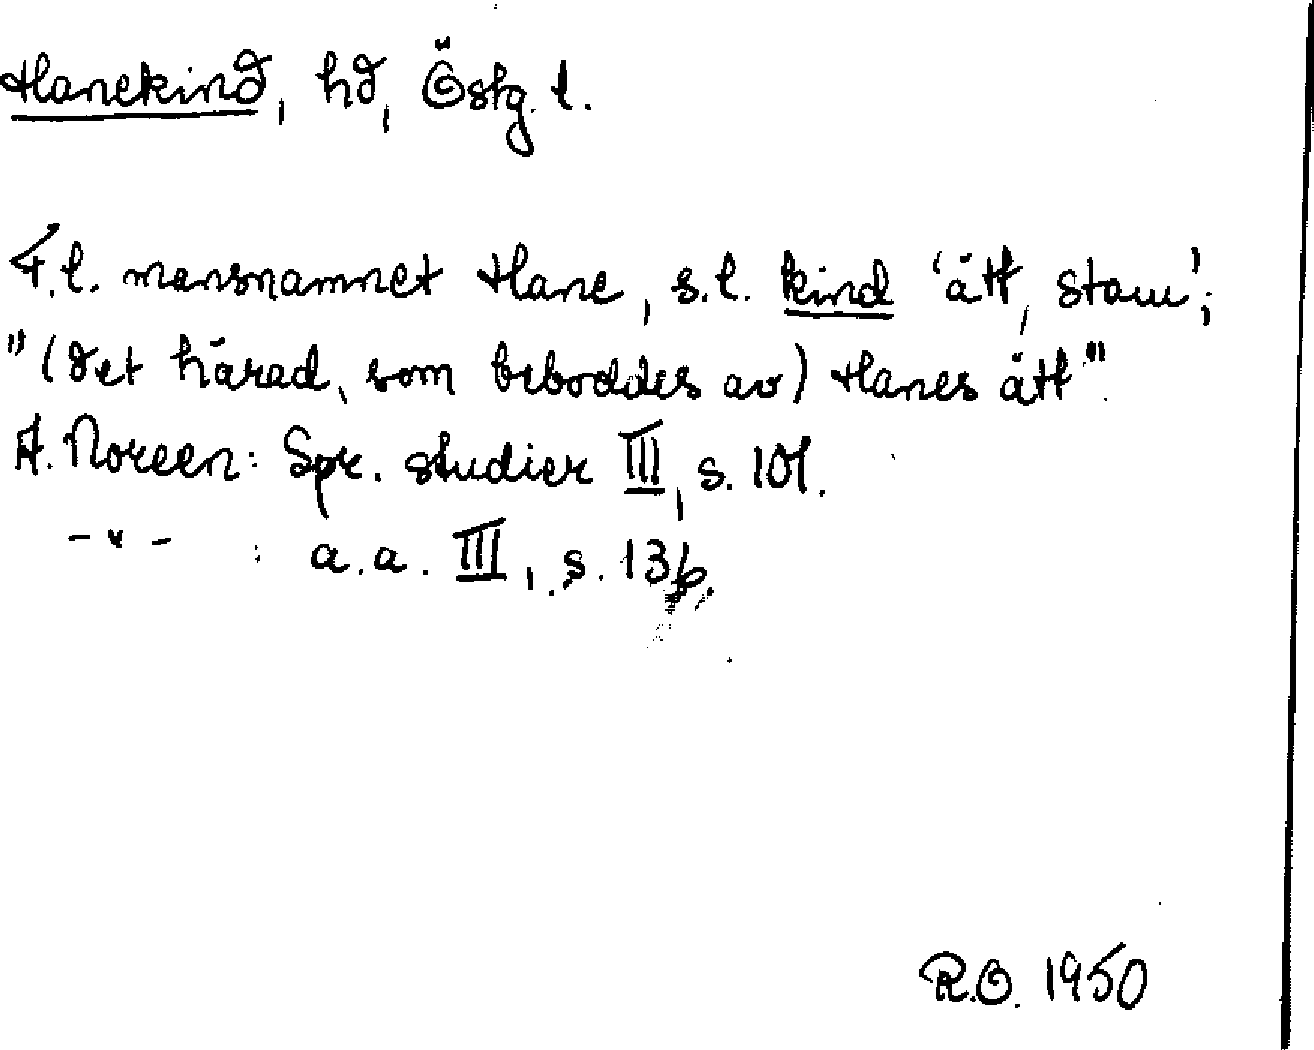 Hanekind, hd, Östg. l.
F.l. mansnamnet Hane, s.l. kind 'ätt, stam';
"(det härad, som beboddes av) Hanes ätt".
A. Noreen: Spr. studier III, s. 101.
-"- : a.a. III, s. 136.
R.O. 1950